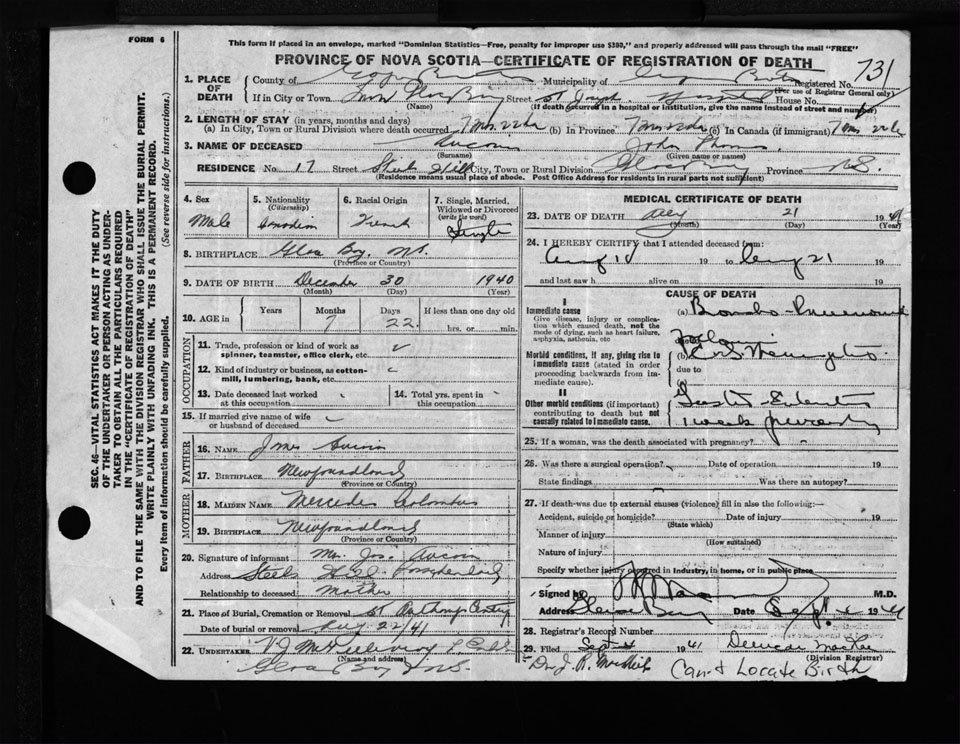 FORM 6
This form if placed in an envelope, marked "Dominion Statistics—Free, penalty for improper use $300," and properly addressed will pass through the mail "FREE"
PROVINCE OF NOVA SCOTIA—CERTIFICATE OF REGISTRATION OF DEATH
SEC. 46—VITAL STATISTICS ACT MAKES IT THE DUTY
OF THE UNDERTAKER OR PERSON ACTING AS UNDER-
TAKER TO OBTAIN ALL THE PARTICULARS REQUIRED
IN THE "CERTIFICATE OF REGISTRATION OF DEATH"
AND TO FILE THE SAME WITH THE DIVISION REGISTRAR WHO SHALL ISSUE THE BURIAL PERMIT.
WRITE PLAINLY WITH UNFADING INK. THIS IS A PERMANENT RECORD.
Every item of information should be carefully supplied. (See reverse side for instructions.)
1. PLACE OF DEATH County of Cape Breton Municipality of Cape Breton Registered No. 731
(For use of Registrar General only)
If in City or Town Glace Bay Street St Joseph Hospital House No.
(Name) (If death occurred in a hospital or institution, give the name instead of street and number)
2. LENGTH OF STAY (in years, months and days)
(a) In City, Town or Rural Division where death occurred 7 mos 22 da (b) In Province 7 mos 22 da (c) In Canada (if immigrant) 7 mos 22 da
3. NAME OF DECEASED Aucoin John Thomas
(Surname) (Given name or names)
RESIDENCE No. 17 Street Steels Hill City, Town or Rural Division Glace Bay Province N.S.
(Residence means usual place of abode. Post Office Address for residents in rural parts not sufficient)
4. Sex 5. Nationality (Citizenship) 6. Racial Origin 7. Single, Married, Widowed or Divorced (write the word)
Male Canadian French Single
8. BIRTHPLACE Glace Bay, N.S.
(Province or Country)
9. DATE OF BIRTH December 30 1940
(Month) (Day) (Year)
10. AGE in Years Months Days If less than one day old
7 22 hrs. or min.
OCCUPATION
11. Trade, profession or kind of work as spinner, teamster, office clerk, etc.
12. Kind of industry or business, as cotton-mill, lumbering, bank, etc.
13. Date deceased last worked at this occupation 14. Total yrs. spent in this occupation
15. If married give name of wife or husband of deceased
FATHER
16. NAME Aucoin
17. BIRTHPLACE Newfoundland
(Province or Country)
MOTHER
18. MAIDEN NAME Mercedes Colombus
19. BIRTHPLACE Newfoundland
(Province or Country)
20. Signature of informant Mrs. Jos. Aucoin
Address Steels Hill
Relationship to deceased Mother
21. Place of Burial, Cremation or Removal St Anthony Cemetery
Date of burial or removal Aug 22/41
22. UNDERTAKER V J
(Name and address)
Glace Bay N.S.
MEDICAL CERTIFICATE OF DEATH
23. DATE OF DEATH Aug 21 1941
(Month) (Day) (Year)
24. I HEREBY CERTIFY that I attended deceased from:
Aug 18 19 to Aug 21 19
and last saw h alive on 19
CAUSE OF DEATH
I
Immediate cause
Give disease, injury or complication which caused death, not the mode of dying, such as heart failure, asphyxia, asthenia, etc
(a) Broncho-Pneumonia
Morbid conditions, if any, giving rise to immediate cause (stated in order proceeding backwards from immediate cause).
(b)
due to
II
Other morbid conditions (if important) contributing to death but not causally related to immediate cause.
Gastro-Enteritis
1 week previously
25. If a woman, was the death associated with pregnancy?
26. Was there a surgical operation? Date of operation 19
State findings Was there an autopsy?
27. If death was due to external causes (violence) fill in also the following:—
Accident, suicide or homicide? Date of injury 19
(State which)
Manner of injury
(How sustained)
Nature of injury
Specify whether injury occurred in industry, in home, or in public place
Signed by M.D.
Address Glace Bay Date Sept. 1941
28. Registrar's Record Number
29. Filed Sept 1941
(Division Registrar)
Dr J. R.
Cannot Locate Birth